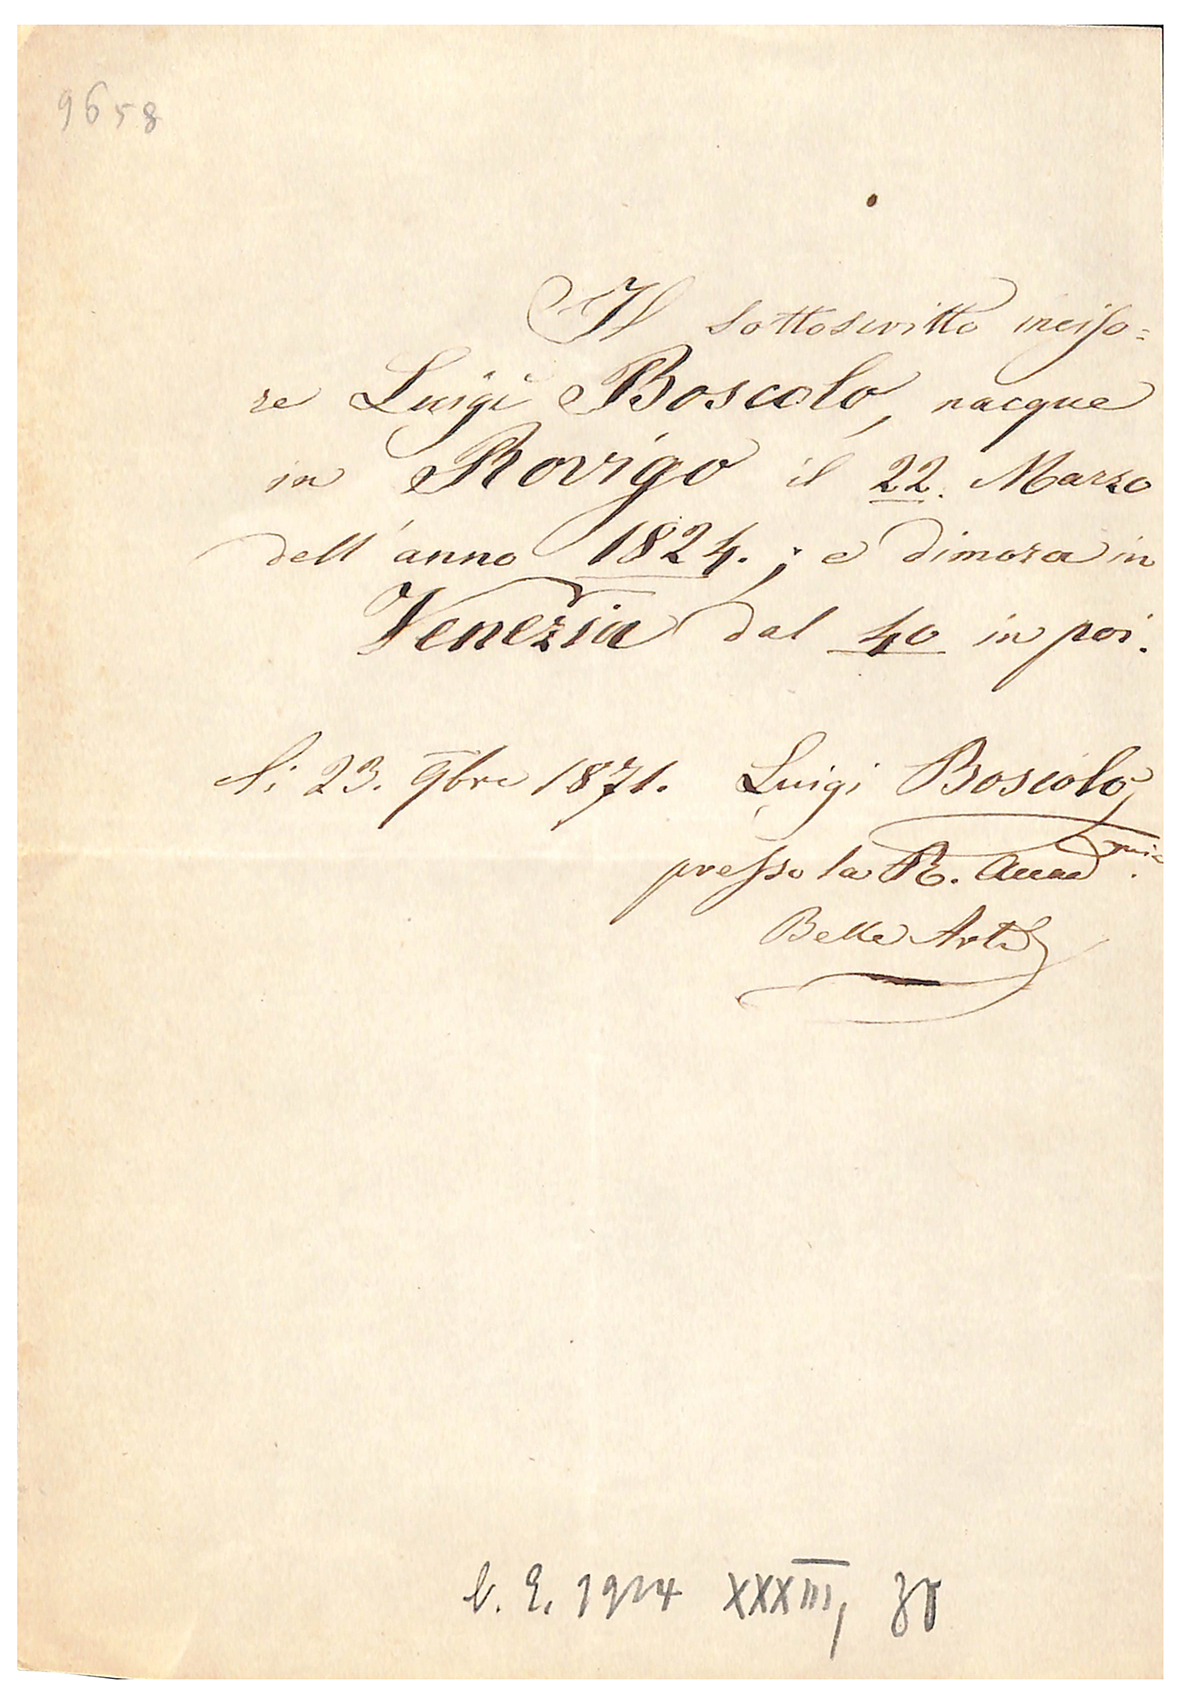 9658
Il sottoscritto inciso=
re Luigi Boscolo, nacque
in Rovigo il 22. Marzo
dell'anno 1824.; e dimora in
Venezia dal 40 in poi.
li 23. 9bre 1871. Luigi Boscolo,
presso la R. Accad.mia
Belle Arti
1924 XXXIII,